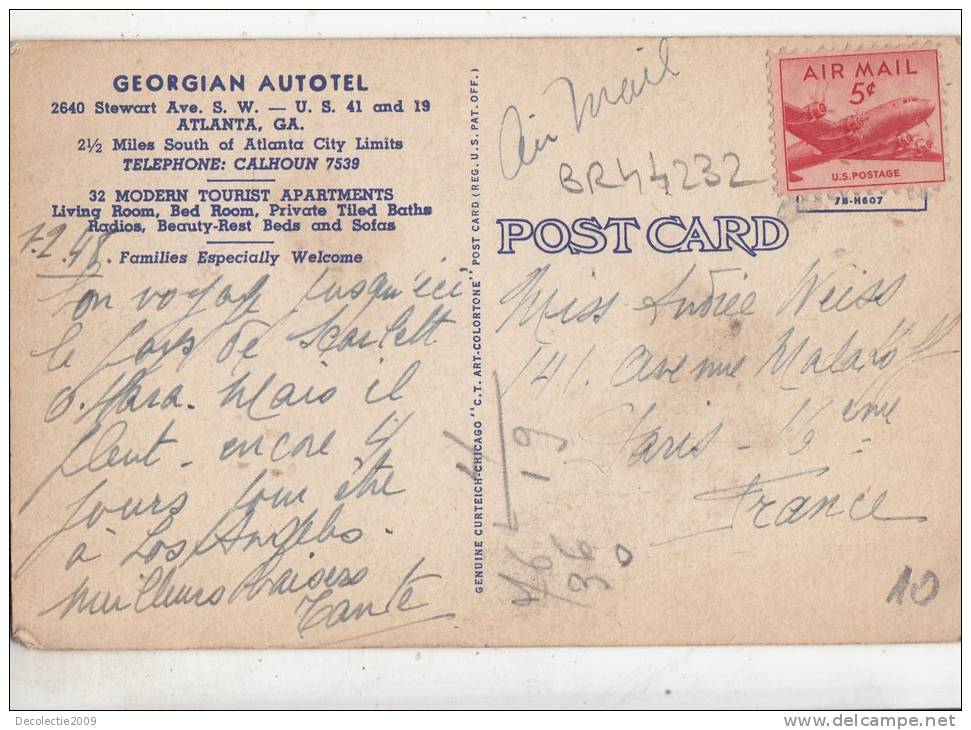 GEORGIAN AUTOTEL
2640 Stewart Ave. S. W. — U. S. 41 and 19
ATLANTA, GA.
2½ Miles South of Atlanta City Limits
TELEPHONE: CALHOUN 7539
32 MODERN TOURIST APARTMENTS
Living Room, Bed Room, Private Tiled Baths
Radios, Beauty-Rest Beds and Sofas
Families Especially Welcome
1-2.48.
Bon voyage jusqu'ici
le pays de Scarlett
O. Hara. Mais il
pleut - encore 4
jours pour être
à Los Angeles.
Meilleurs baisers
Tante
GENUINE CURTEICH-CHICAGO "C.T. ART-COLORTONE" POST CARD (REG. U.S. PAT. OFF.)
Air Mail
BR44232
AIR MAIL
5¢
U.S. POSTAGE
7B-H607
POST CARD
Miss Andrée Weiss
141. Avenue Malakoff
Paris - 16 eme
France
19
36
0
10
Decolectie2009
delcampe.net